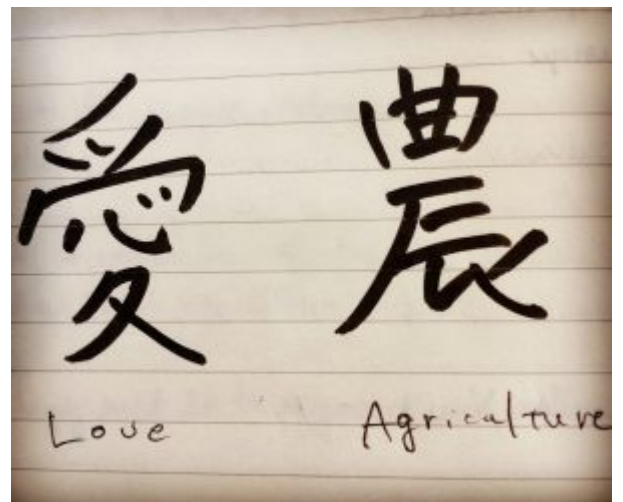 愛 農
Love Agriculture